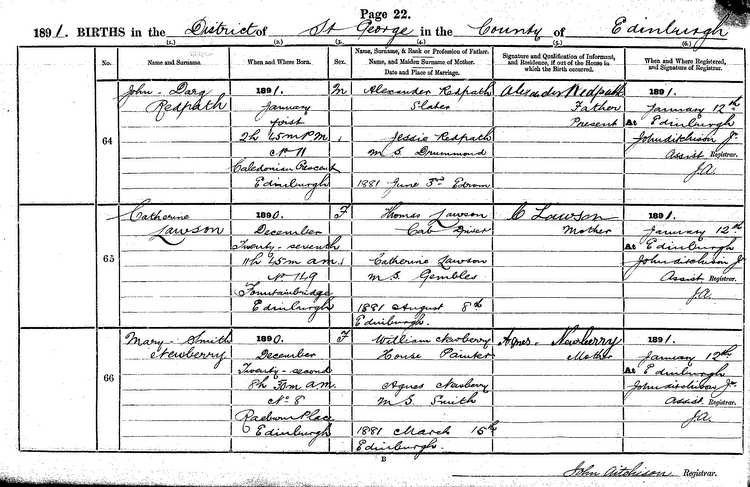 Page 22.
1891. BIRTHS in the District of St George in the County of Edinburgh
(1.) (2.) (3.) (4.) (5.) (6.)
No. Name and Surname. When and Where Born. Sex. Name, Surname, & Rank or Profession of Father. Name, and Maiden Surname of Mother. Date and Place of Marriage. Signature and Qualification of Informant, and Residence, if out of the House in which the Birth occurred. When and Where Registered, and Signature of Registrar.
64
John
Redpath
1891.
January
first
2h 45m P.M.
No 11
Caledonian Crescent
Edinburgh
M
Alexander Redpath
Slater
Jessie Redpath
M.S. Drummond
1881 June 3rd Edrom
Alexander Redpath
Father
Present
1891.
January 12th
At Edinburgh
John Aitchison Jr
Assist Registrar.
J.A.
65
Catherine
Lawson
1890.
December
Twenty-seventh
11h 45m a.m.
No 149
Fountainbridge
Edinburgh
F
Thomas Lawson
Cab Driver
Catherine Lawson
M.S. Gembles
1881 August 8th
Edinburgh.
C Lawson
Mother
1891.
January 12th
At Edinburgh
John Aitchison Jr
Assist Registrar.
J.A.
66
Mary Smith
Newberry
1890.
December
Twenty-second
8h 30m a.m.
No 8
Raeburn Place
Edinburgh
F
William Newberry
House Painter
Agnes Newberry
M.S. Smith
1881 March 15th
Edinburgh.
Agnes Newberry
Mother
1891.
January 12th
At Edinburgh
John Aitchison Jr
Assist. Registrar.
J.A.
B
John Aitchison Registrar.